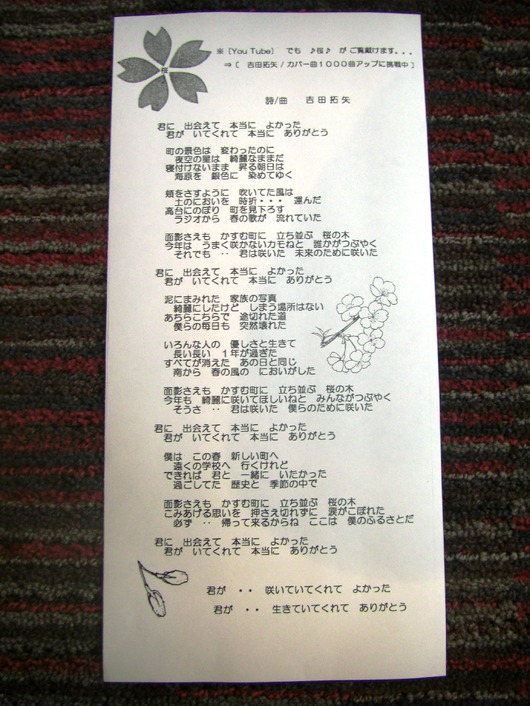 桜
※［You Tube］ でも ♪桜♪ が ご覧戴けます．．．
⇒［ 吉田拓矢 / カバー曲１０００曲アップに挑戦中 ］
詩/曲 吉田拓矢
君に 出会えて 本当に よかった
君が いてくれて 本当に ありがとう
町の景色は 変わったのに
夜空の星は 綺麗なままだ
寝付けないまま 昇る朝日は
海原を 銀色に 染めてゆく
頬をさすように 吹いてた風は
土のにおいを 時折・・・ 運んだ
高台にのぼり 町を見下ろす
ラジオから 春の歌が 流れていた
面影さえも かすむ町に 立ち並ぶ 桜の木
今年は うまく咲かないカモねと 誰かがつぶやく
それでも ‥ 君は咲いた 未来のために咲いた
君に 出会えて 本当に よかった
君が いてくれて 本当に ありがとう
泥にまみれた 家族の写真
綺麗にしたけど しまう場所はない
あちらこちらで 途切れた道
僕らの毎日も 突然壊れた
いろんな人の 優しさと生きて
長い長い １年が過ぎた
すべてが消えた あの日と同じ
南から 春の風の においがした
面影さえも かすむ町に 立ち並ぶ 桜の木
今年も 綺麗に咲いてほしいねと みんながつぶやく
そうさ ‥ 君は咲いた 僕らのために咲いた
君に 出会えて 本当に よかった
君が いてくれて 本当に ありがとう
僕は この春 新しい町へ
遠くの学校へ 行くけれど
できれば 君と 一緒に いたかった
過ごしてた 歴史と 季節の中で
面影さえも かすむ町に 立ち並ぶ 桜の木
こみあげる思いを 押さえ切れずに 涙がこぼれた
必ず ‥ 帰って来るからね ここは 僕のふるさとだ
君に 出会えて 本当に よかった
君が いてくれて 本当に ありがとう
君が ・・ 咲いていてくれて よかった
君が ・・ 生きていてくれて ありがとう